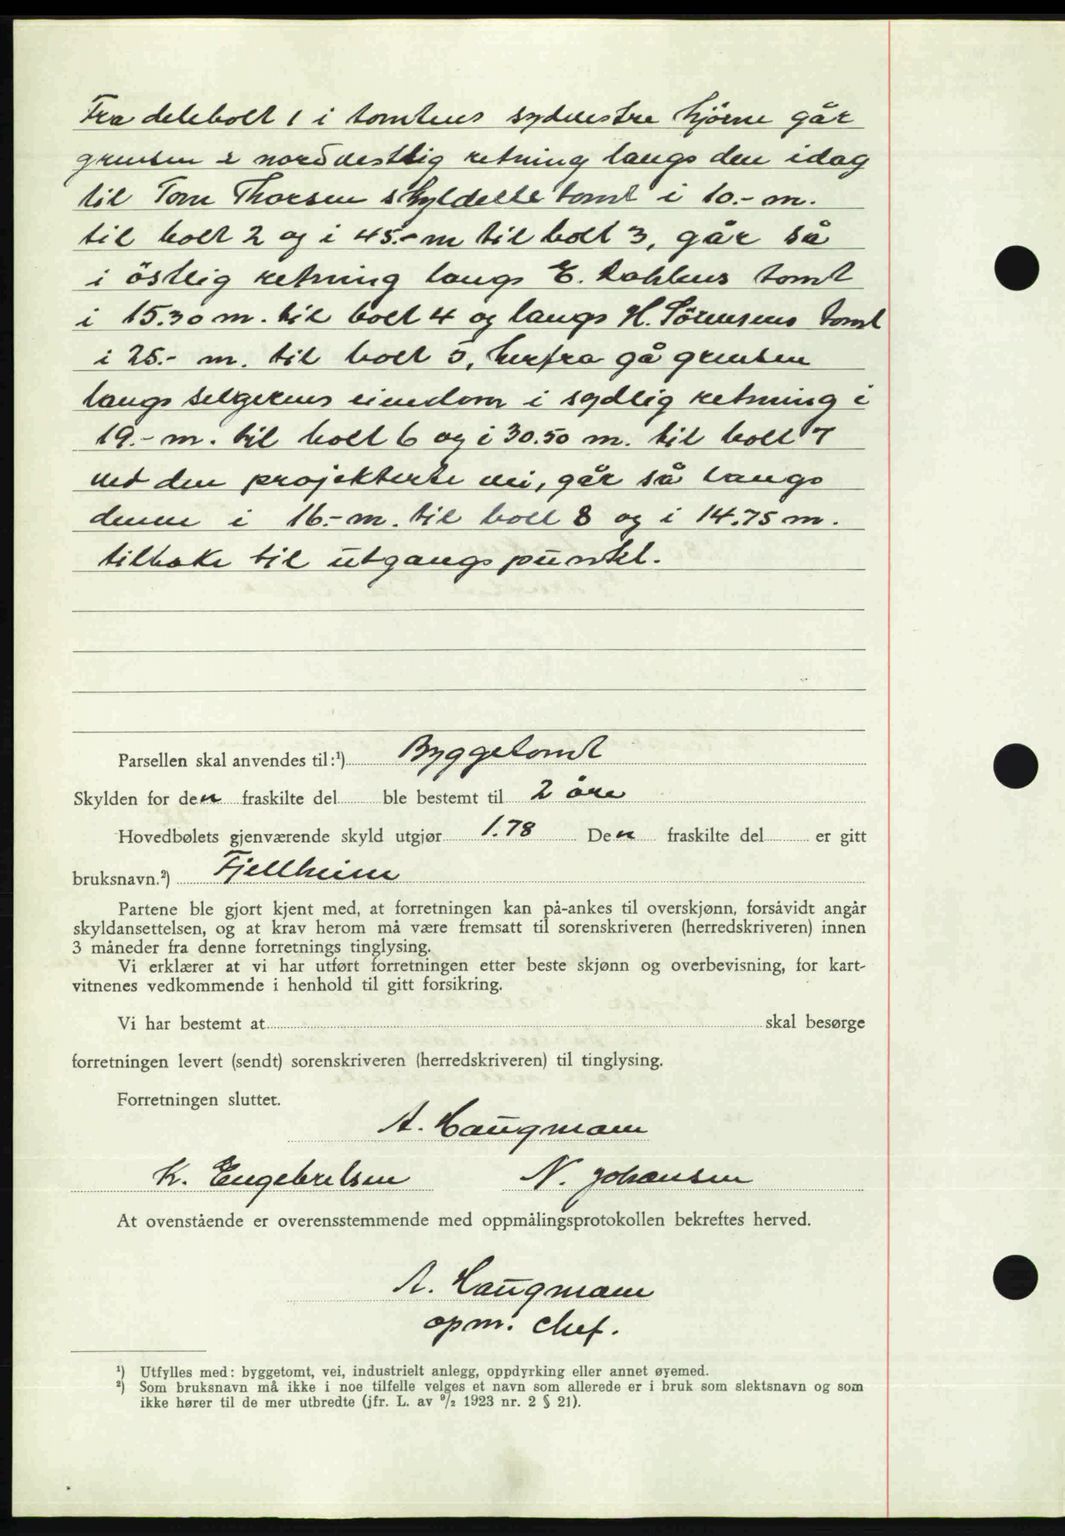 Fra delebolt 1 i tomtens sydvestre hjørne går
grensen i nordvestlig retning langs den idag
til Tom Thorsen skyldelte tomt i 10.- m.
til bolt 2 og i 45.- m til bolt 3, går så
i östlig retning langs E. Dahlens tomt
i 15.30 m. til bolt 4 og langs H. Sörensens tomt
i 25.- m. til bolt 5, herfra gå grensen
langs selgerens eiendom i sydlig retning i
19.- m. til bolt 6 og i 30.50 m. til bolt 7
ved den projekterte vei, går så langs
denne i 16.- m. til bolt 8 og i 14.75 m.
tilbake til utgangspunktet.
Parsellen skal anvendes til:¹) Byggetomt
Skylden for den fraskilte del ble bestemt til 2 öre
Hovedbølets gjenværende skyld utgjør 1.78 Den fraskilte del er gitt
bruksnavn.²) Fjellheim
Partene ble gjort kjent med, at forretningen kan på-ankes til overskjønn, forsåvidt angår
skyldansettelsen, og at krav herom må være fremsatt til sorenskriveren (herredskriveren) innen
3 måneder fra denne forretnings tinglysing.
Vi erklærer at vi har utført forretningen etter beste skjønn og overbevisning, for kart-
vitnenes vedkommende i henhold til gitt forsikring.
Vi har bestemt at skal besørge
forretningen levert (sendt) sorenskriveren (herredskriveren) til tinglysing.
Forretningen sluttet.
A. Haugmann
K. Engebretsen N. Johansen
At ovenstående er overensstemmende med oppmålingsprotokollen bekreftes herved.
A. Haugmann
opm. chef.
¹) Utfylles med: byggetomt, vei, industrielt anlegg, oppdyrking eller annet øyemed.
²) Som bruksnavn må ikke i noe tilfelle velges et navn som allerede er i bruk som slektsnavn og som
ikke hører til de mer utbredte (jfr. L. av ⁹/₂ 1923 nr. 2 § 21).